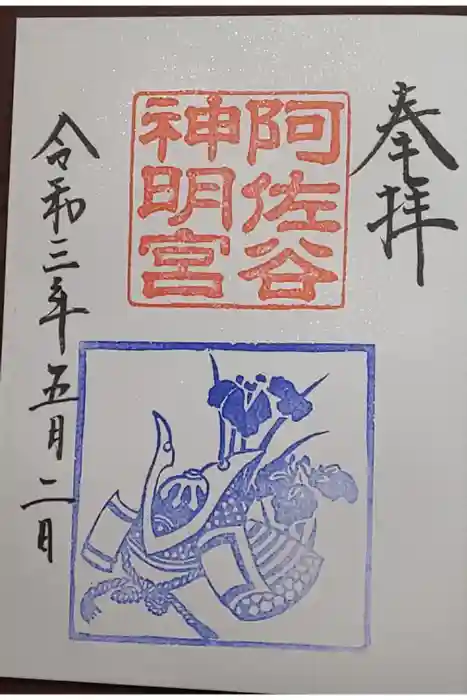 奉拝
阿佐谷
神明宮
令和三年五月二日